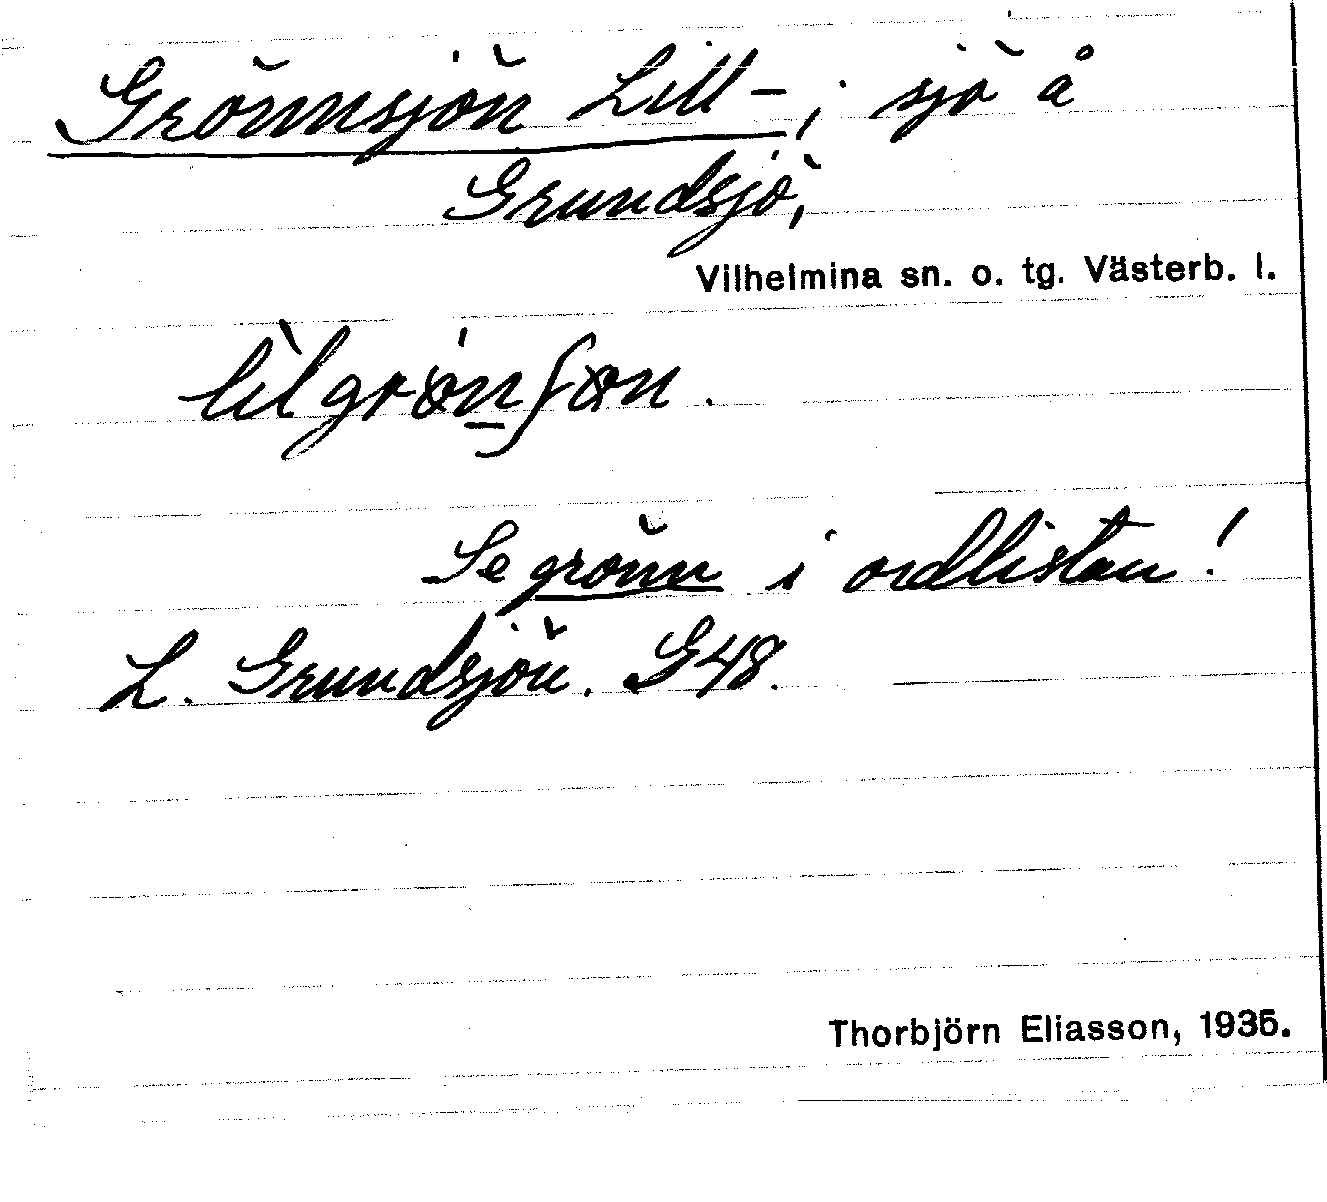 Grönnsjön Lill-; sjö å
Grundsjö,
Vilhelmina sn. o. tg. Västerb. l.
Se grönn i ordlistan!
L. Grundsjön. G48.
Thorbjörn Eliasson, 1935.